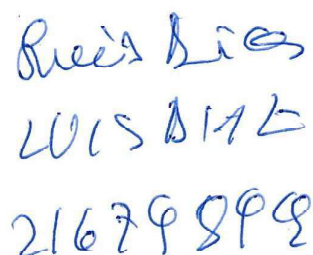 Luis Diaz
LUIS DIAZ
21679899